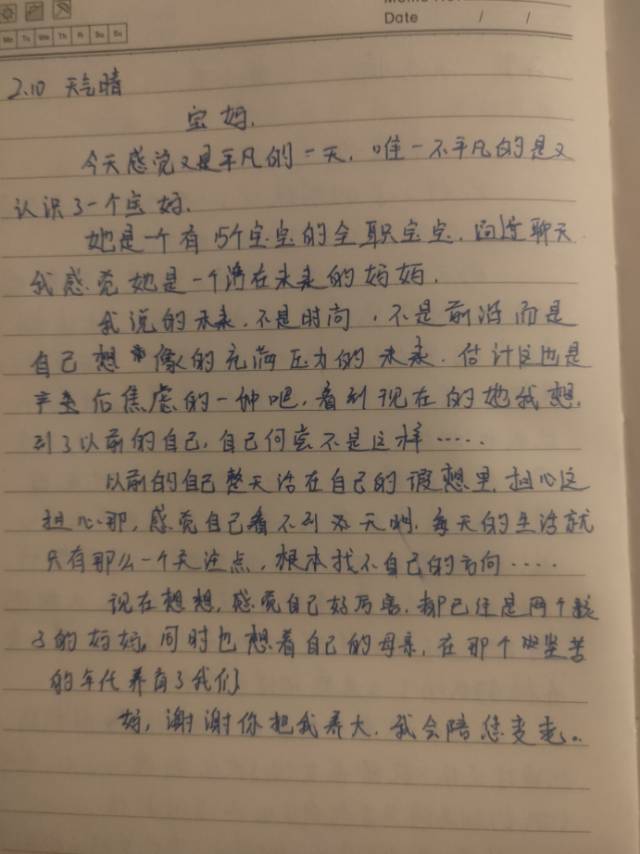 Date / /
Mo Tu We Th Fr Sa Su
2.10 天气晴
宝妈.
今天感觉又是平凡的一天, 唯一不平凡的是又
认识了一个宝妈.
她是一个有15个宝宝的全职宝妈. 向过聊天
我感觉她是一个活在未来的妈妈.
我说的未来, 不是时间, 不是前沿而是
自己想像的充满压力的未来. 估计这也是
产后焦虑的一种吧, 看到现在的她我想,
到了以前的自己, 自己何尝不是这样……
以前的自己整天活在自己的假想里. 担心这
担心那, 感觉自己看不到天, 每天的生活就
只有那么一个关注点, 根本找不自己的方向……
现在想想, 感觉自己好厉害, 都已经是两个孩
子的妈妈, 同时也想着自己的母亲, 在那个坚苦
的年代养育了我们
妈, 谢谢你把我养大. 我会陪您变老..